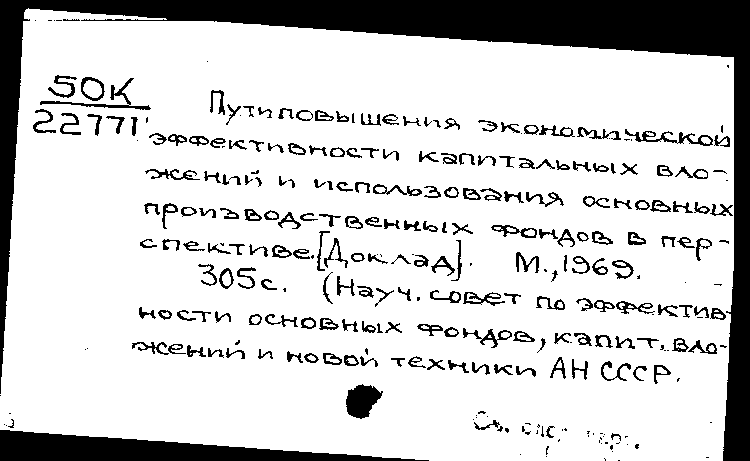 50К
22771
Пути повышения экономической
эффективности капитальных вло-
жений и использования основных
производственных фондов в пер-
спективе. [Доклад]. М., 1969.
305с. (Науч. совет по эффектив-
ности основных фондов, капит. вло-
жений и новой техники АН СССР.
См.